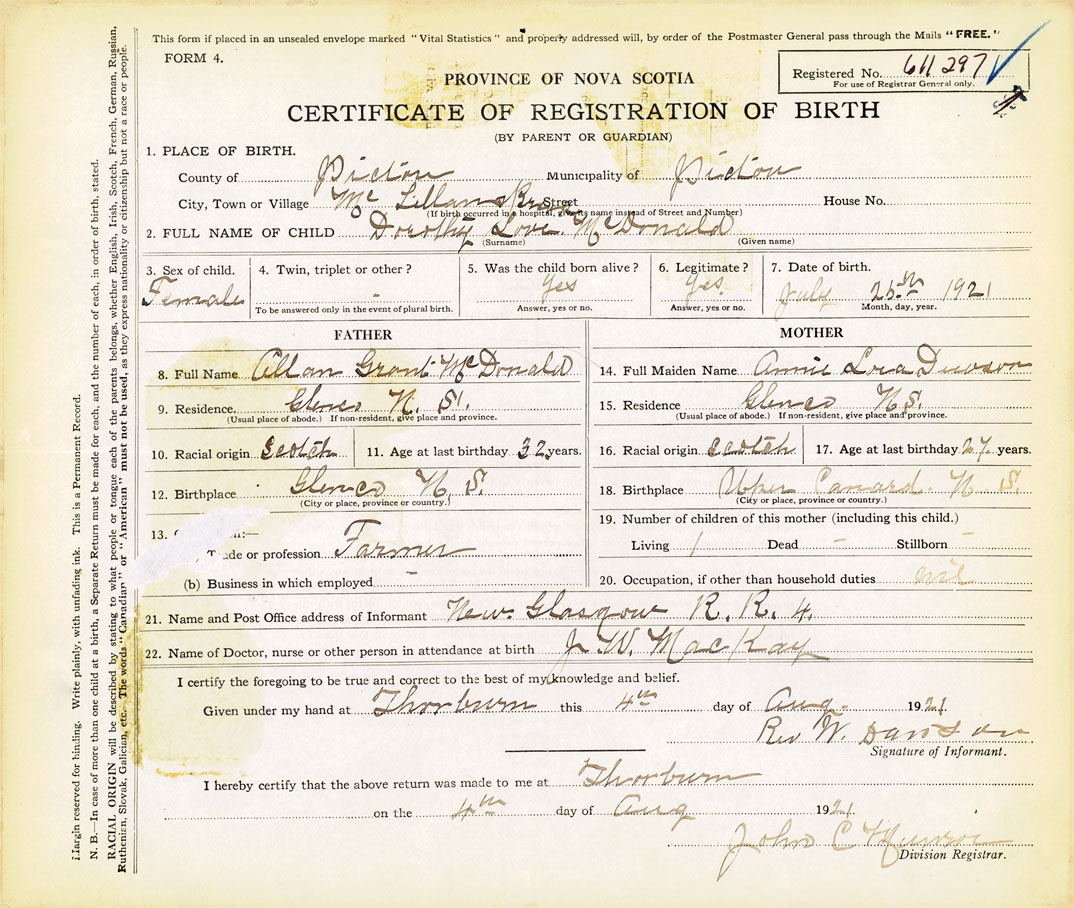 This form if placed in an unsealed envelope marked "Vital Statistics" and property addressed will, by order of the Postmaster General pass through the Mails "FREE."
FORM 4.
Registered No. 611297
For use of Registrar General only.
PROVINCE OF NOVA SCOTIA
CERTIFICATE OF REGISTRATION OF BIRTH
(BY PARENT OR GUARDIAN)
1. PLACE OF BIRTH.
County of Pictou Municipality of Pictou
City, Town or Village Street House No.
(If birth occurred in a hospital, give its name instead of Street and Number)
2. FULL NAME OF CHILD Dorothy Love McDonald
(Surname) (Given name)
3. Sex of child. 4. Twin, triplet or other? 5. Was the child born alive? 6. Legitimate? 7. Date of birth.
Female - Yes Yes. July 26th 1921
To be answered only in the event of plural birth. Answer, yes or no. Answer, yes or no. Month, day, year.
FATHER MOTHER
8. Full Name Allan Grant McDonald 14. Full Maiden Name Annie
9. Residence. Glenco N. S. 15. Residence Glenco N.S.
(Usual place of abode.) If non-resident, give place and province. (Usual place of abode.) If non-resident, give place and province.
10. Racial origin Scotch 11. Age at last birthday 32 years. 16. Racial origin Scotch 17. Age at last birthday 27 years.
12. Birthplace Glenco N. S. 18. Birthplace Upper Canard. N. S.
(City or place, province or country.) (City or place, province or country.)
13. 19. Number of children of this mother (including this child.)
Trade or profession Farmer Living 1 Dead - Stillborn -
(b) Business in which employed - 20. Occupation, if other than household duties nil
21. Name and Post Office address of Informant New Glasgow R. R. 4.
22. Name of Doctor, nurse or other person in attendance at birth J. W. MacKay
I certify the foregoing to be true and correct to the best of my knowledge and belief.
Given under my hand at Thorburn this 4th day of Aug. 1921.
Rev W. Davidson
Signature of Informant.
I hereby certify that the above return was made to me at Thorburn
on the 4th day of Aug 1921
John C Munroe
Division Registrar.
Margin reserved for binding. Write plainly, with unfading ink. This is a Permanent Record.
N. B.—In case of more than one child at a birth, a Separate Return must be made for each, and the number of each, in order of birth, stated.
RACIAL ORIGIN will be described by stating to what people or tongue each of the parents belongs, whether English, Irish, Scotch, French, German, Russian,
Ruthenian, Slovak, Galician, etc. The words "Canadian" or "American" must not be used, as they express nationality or citizenship but not a race or people.